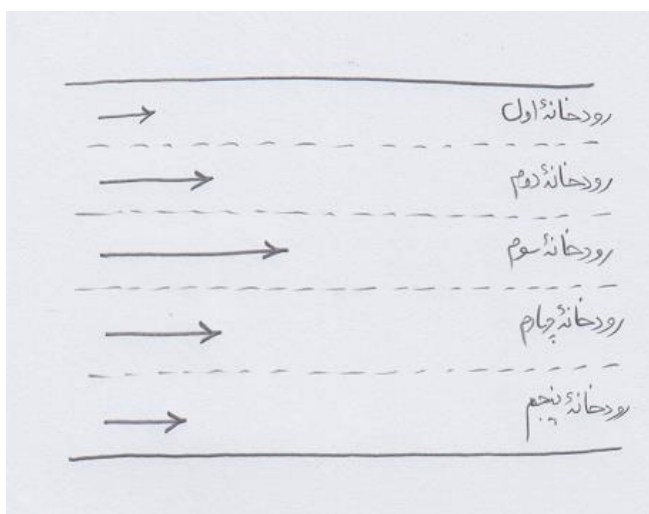 رودخانهٔ اول
رودخانهٔ دوم
رودخانهٔ سوم
رودخانهٔ چهارم
رودخانهٔ پنجم